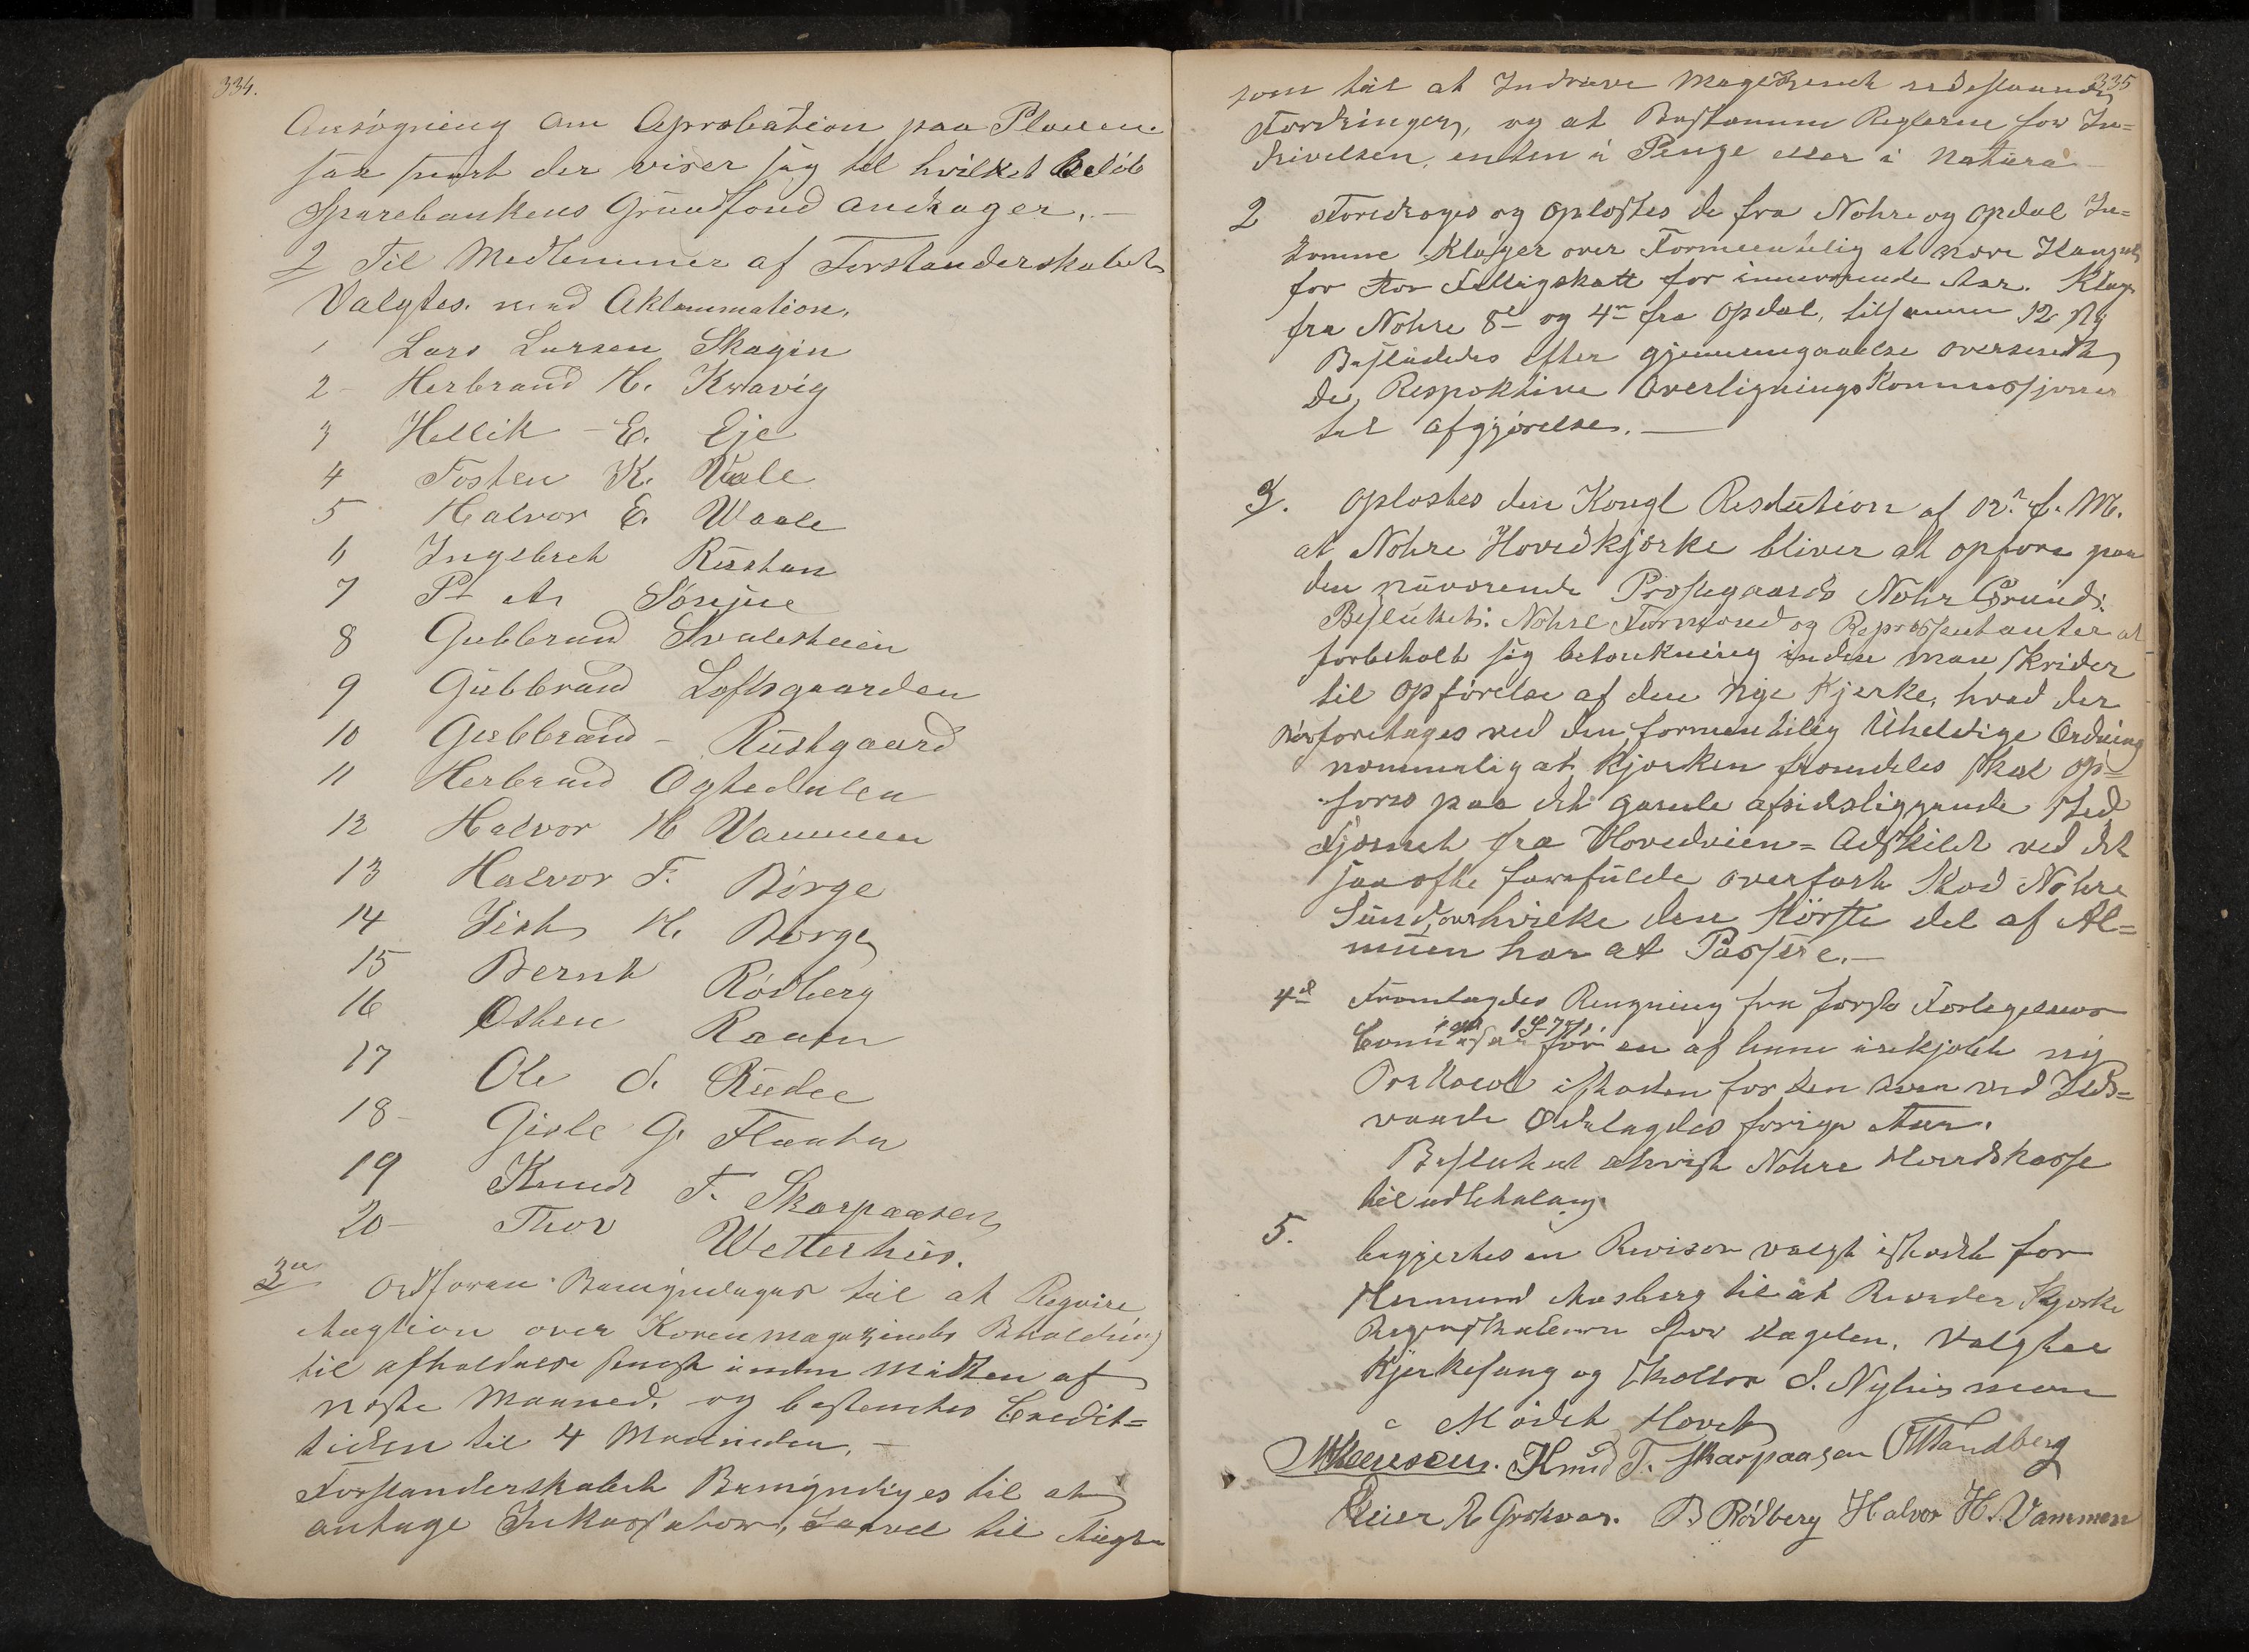 334.
Ansøgning om Aprobation paa Planen
saa snart der viser sig til hvilket Beløb
Sparebankens Grundfond andrager. —
2 Til Medlemmer af Forstanderskabet
Valgtes med Aklammation.
1 Lars Larsen Skagin
2 - Herbrand H. Kravig
3 Hellik - E. Eje
4 Tosten K. Vaale
5 Halvor E. Waale
6 Ingebret Rustan
7 P. A. Sønjue
8 Gubbrand Svalestuen
9 Gubbrand Loftsgaarden
10 Gubbrand - Rustgaard
11 Herbrand Ogtedalen
12 Halvor H Vammen
13 Halvor T. Børge
14 H. Borge
15 Bernt Rødberg
16 Osten Raaen
17 Ole S. Ruden
18 - Gisle G. Flaata
19 Knud T. Skarpaasen
20 - Thor Wetterhus.
3 Ordføren Bemyndages til at Reqvire
Augtion over Kornmagazinets Beholdning
til afholdelse senest innen Midten af
næste Maaned, og bestemtes Credit=
tiden til 4 Maaneder. —
Forstanderskabet Bemyndiges til at
antage Inkassator, saavel til Augtn
335
som til at Inddrive Magazinets udestaaende
Fordringer, og at Bestemme Reglerne for In=
drivelsen, enten i Penge eller i Natura
2 Foredroges og Oplæstes de fra Nohre og Opdal In=
komne Klager over Formeentelig at være
for stor Fattigskatt for inneværende Aar. Klager
fra Nohre 8 og 4 fra Opdal, tilsammen 12
Besluttedes efter gjennemgaaelse oversendt
de, Respektive Overligningskommissjoner
til Afgjørelse. —
3. Oplæstes den Kongl Resolution af 12 f. M.
at Nohre Hovedkjerke bliver at opføre paa
den nuværende Præstegaards Nohr Grund.
Besluttet: Nohre Formænd og Repræsentanter at
forbeholt sig betænkning inden man skrider
til Opførelse af den nye Kjerke, hvad der
bør foretages ved den formentelig Uheldige Ordning
nemmelig at Kjerken fremdeles skal op=
føres paa det gamle afsidesliggende Sted
Fjernet fra Hovedveien = Adskildt ved det
saa ofte farefulde overfart ved Nohre
Sund, over hvilke den største del af Al=
muen har at Passere. —
4 Fremlagdes Regning fra første Forligelses
Commission 1871 for en af hum inkjøbt ny
Protocol istæden for den som ved Ilds=
vaade Ødelagdes forrige Aar.
Besluttet anvist Nohre Herredskasse
til udbetaling.
5. begjertes en Revisor valgt istædet for
Hermund Aasberg til at Revidere Kjerke
Regnskaberne for Vægelen. Valgtes
Kjerkesang og Skoller S. Nyhus
Mødet Hævet
Knud T. Skarpaasen OTandberg
B Rødberg Halvor H. Vammen